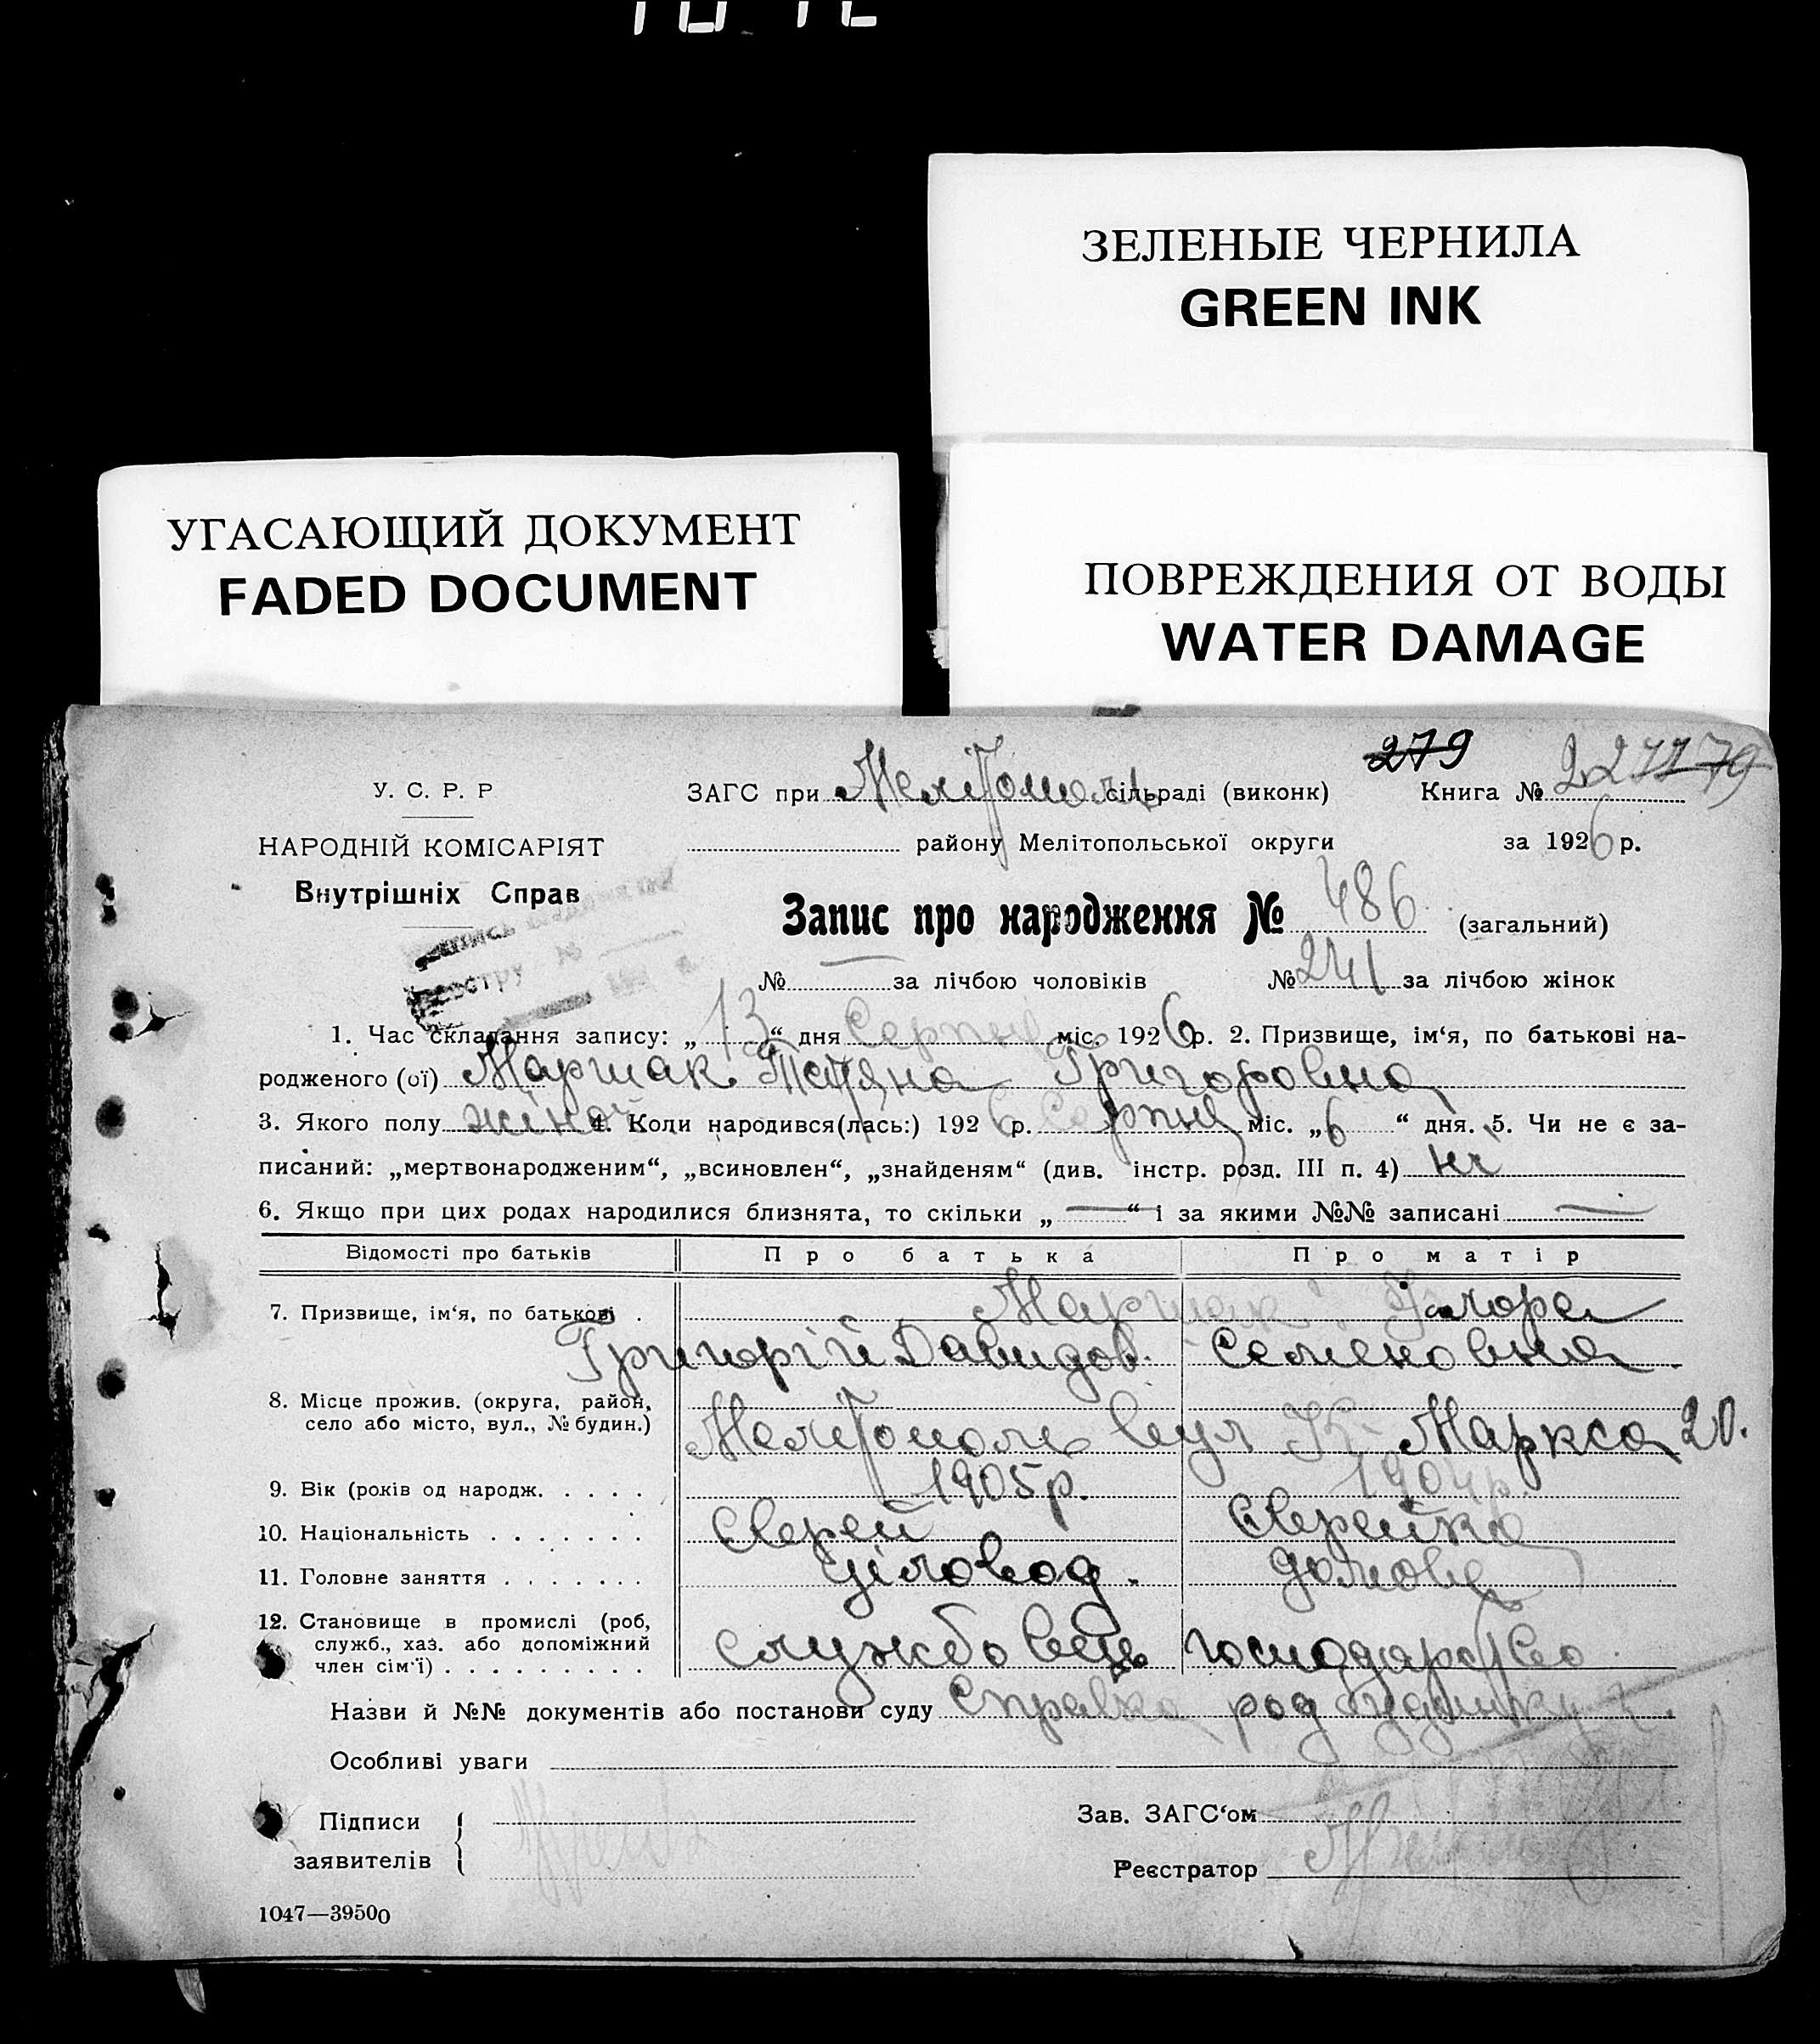 ЗЕЛЕНЫЕ ЧЕРНИЛА
GREEN INK
УГАСАЮЩИЙ ДОКУМЕНТ
FADED DOCUMENT
ПОВРЕЖДЕНИЯ ОТ ВОДЫ
WATER DAMAGE
279
У. С. Р. Р
ЗАГС при Мелітополь сільраді (виконк) Книга №
НАРОДНІЙ КОМІСАРІЯТ
району Мелітопольської округи за 1926 р.
Внутрішніх Справ
Запис про народження № 486 (загальний)
№ — за лічбою чоловіків № 241 за лічбою жінок
1. Час складання запису: „13“ дня Серпня міс. 1926 р. 2. Призвище, ім‘я, по батькові на-
родженого (ої) Маршак Татяна Григоровна
3. Якого полу жіноч 4. Коли народився(лась:) 1926 р. Серпня міс. „6“ дня. 5. Чи не є за-
писаний: „мертвонародженим“, „всиновлен“, „знайденям“ (див. інстр. розд. III п. 4) ні
6. Якщо при цих родах народилися близнята, то скільки „—“ і за якими №№ записані —
Відомості про батьків Про батька Про матір
7. Призвище, ім‘я, по батькові . Маршак:
Григорій Давидов. Семеновна
8. Місце прожив. (округа, район,
село або місто, вул., № будин.)
Мелітополь вул К. Маркса 20.
9. Вік (років од народж. . . . . 1905 р. 1904 р.
10. Національність . . . . . . . Єврей Єврейка
11. Головне заняття . . . . . . . діловод. домове
12. Становище в промислі (роб,
служб., хаз. або допоміжний
член сім‘ї) . . . . . . . . . службовець господарство
Назви й №№ документів або постанови суду Справка род будинку
Особливі уваги
Підписи
заявителів
Зав. ЗАГС‘ом
Реєстратор
1047—39500